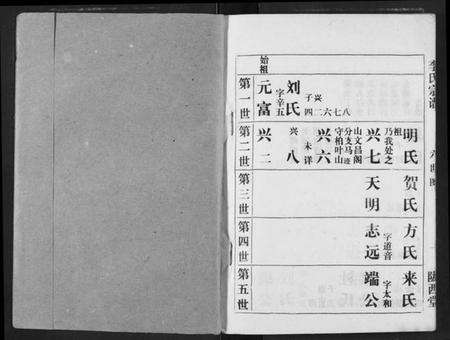 李氏宗谱
陇西堂
始祖
第一世
元富
字辛五
刘氏
子兴
四二六七八
第二世
兴二
兴八
未详
兴六
守柏叶山
分支马迹
山文昌阁
兴七
乃我处之
祖
明氏
第三世
天明
贺氏
第四世
志远
字道音
方氏
第五世
端公
字太和
来氏